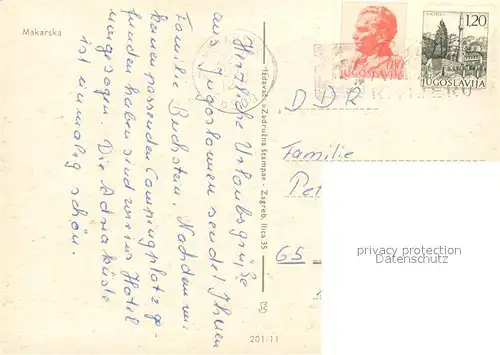 Makarska
Herzliche Urlaubsgrüße
aus Jugoslawien sendet Ihnen
Familie Buchstein. Nachdem wir
keinen passenden Campingplatz ge-
funden haben sind wir ins Hotel
umgezogen. Die Adriaküste
ist einmalig schön.
Izdavač: Zadružna štampa - Zagreb, Ilica 35
201/11
JUGOSLAVIJA
1.20
JUGOSLAVIJA
DDR
Familie
Pet
65
privacy protection
Datenschutz